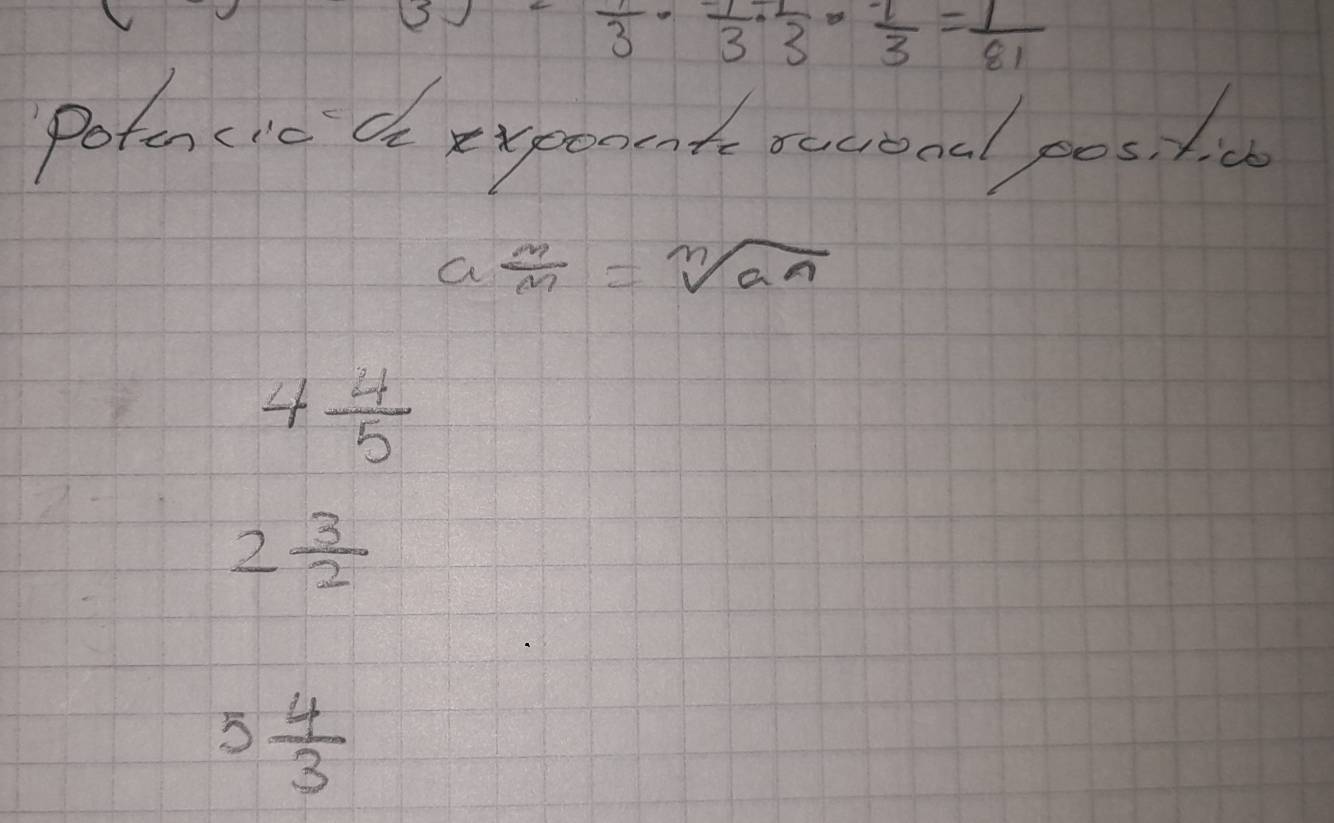 (3) 1/3 · -1/3 · -1/3 · -1/3 = 1/81
Potencia de exponente racional positivo
a m/n = ⁿ√an
4 4/5
2 3/2
5 4/3